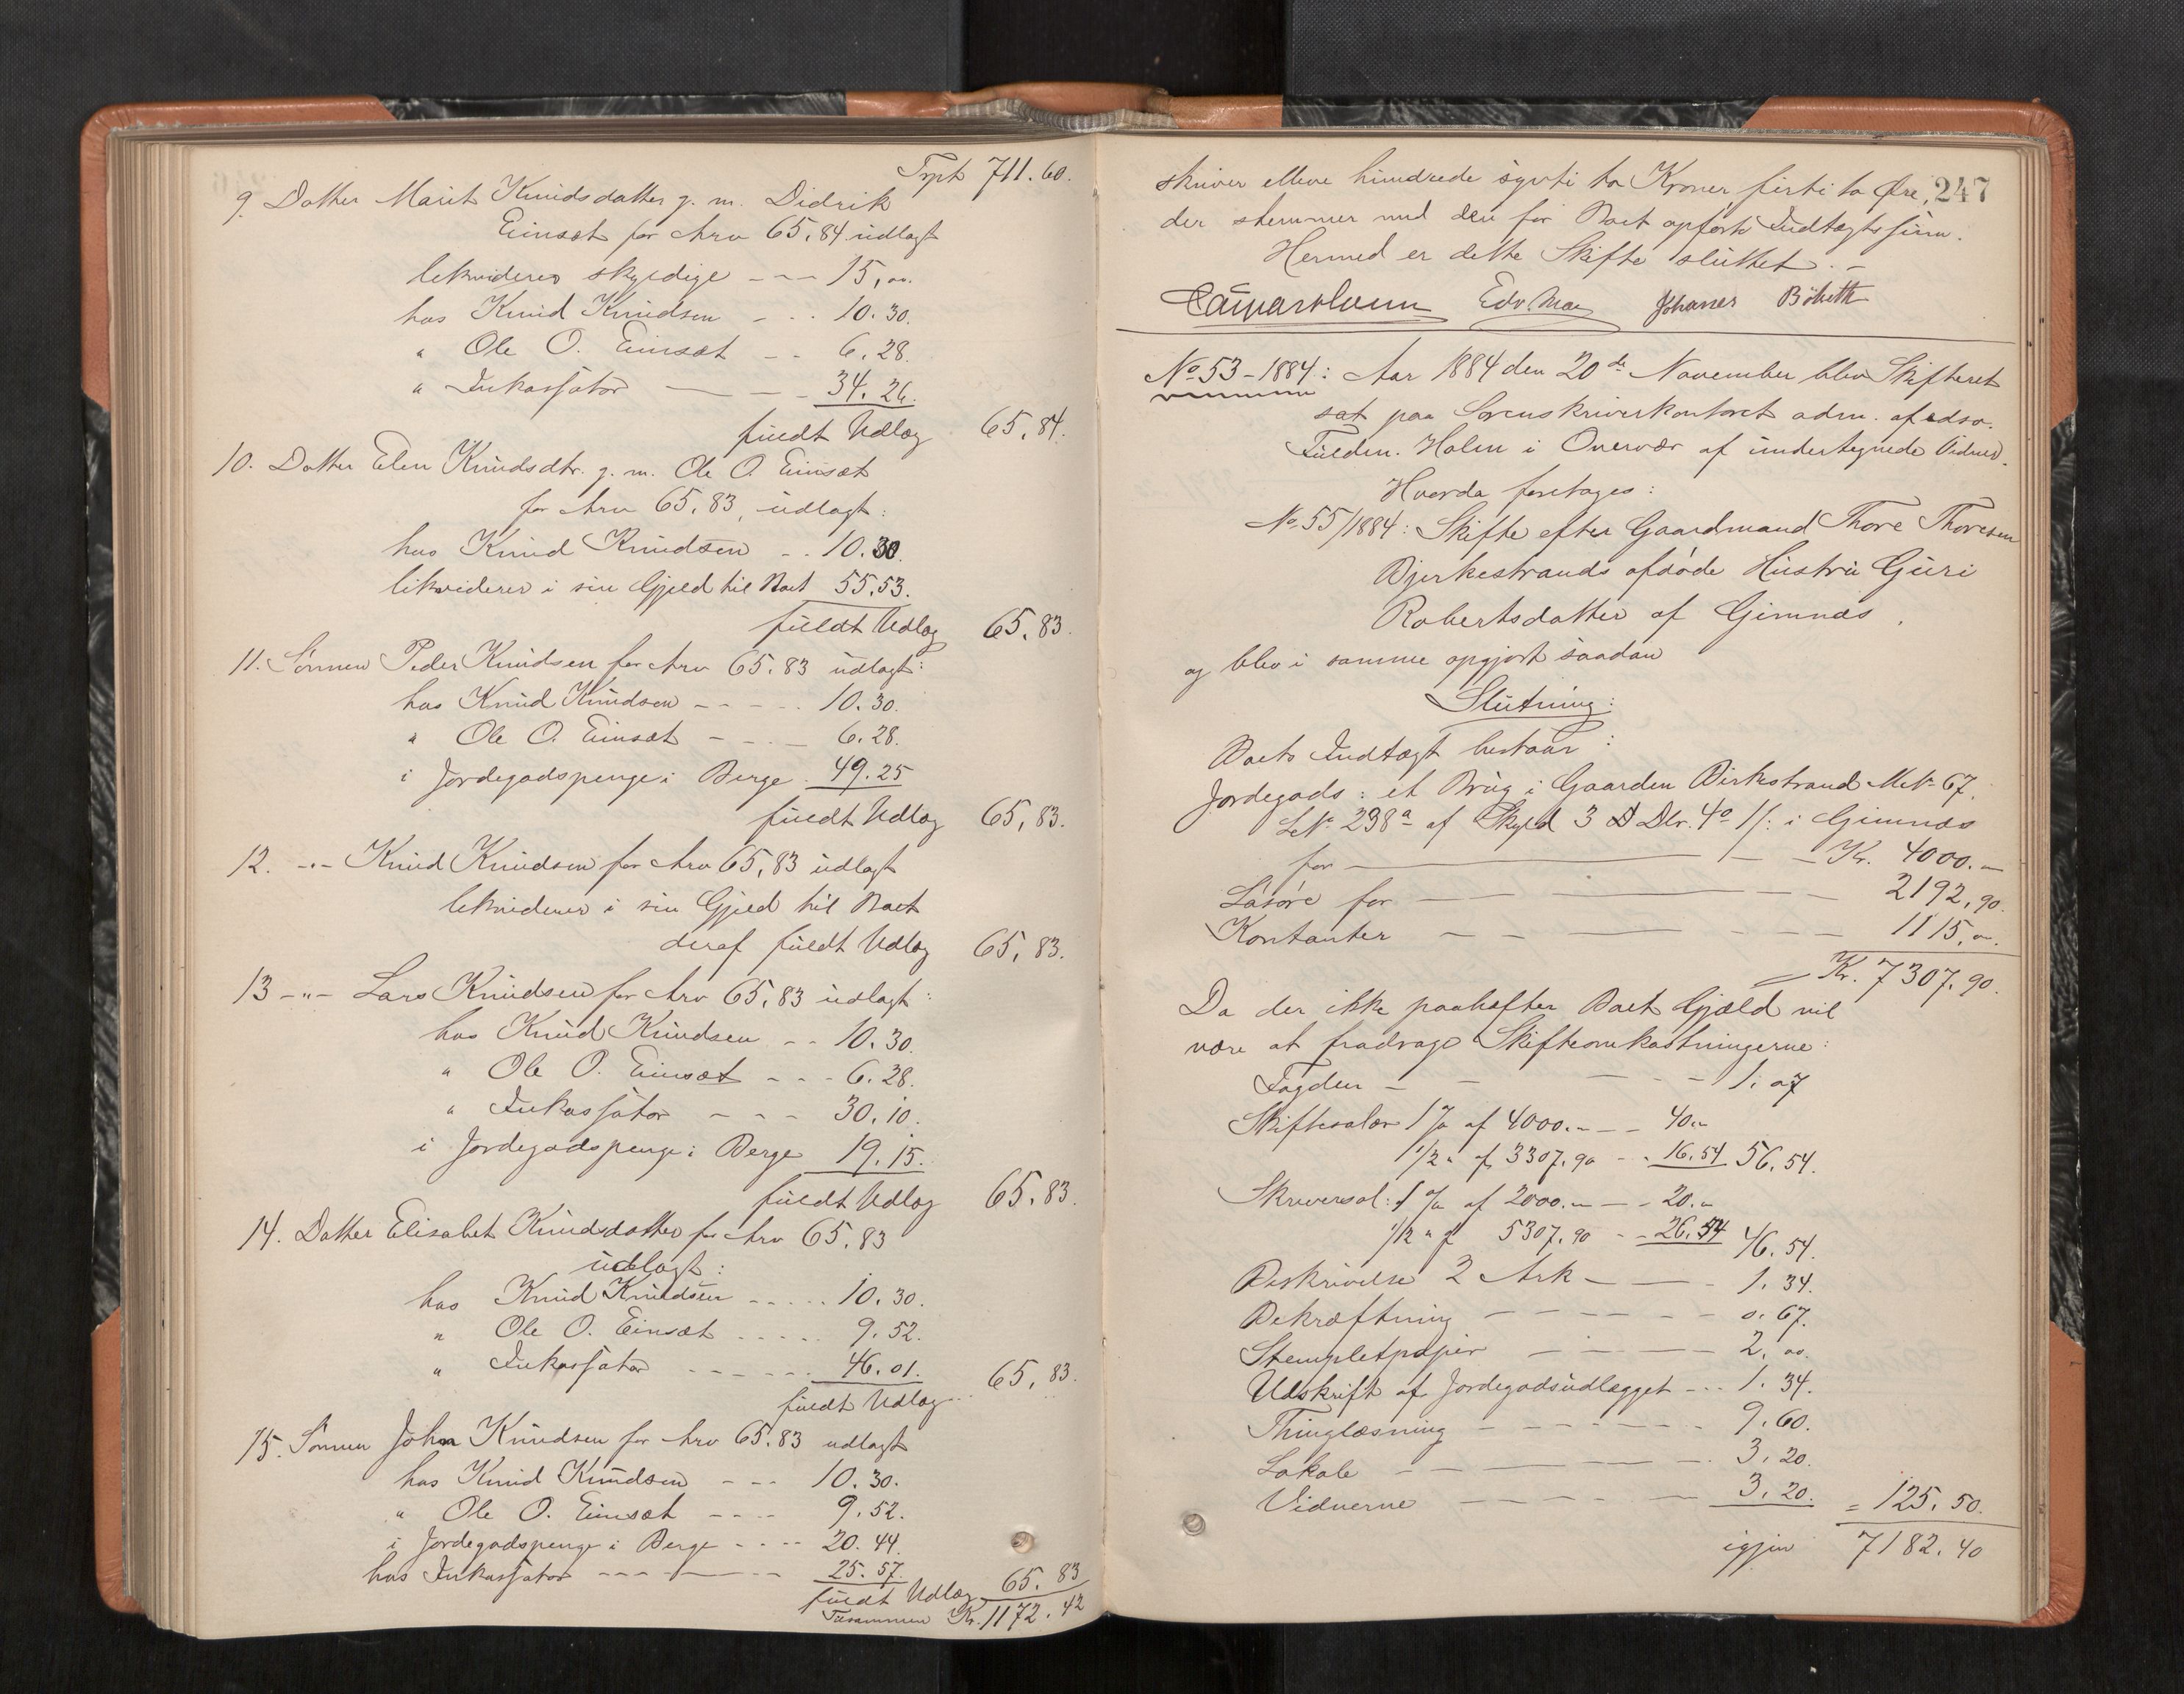 Trpt 711.60.
9. Datter Marit Knudsdatter g. m. Didrik
Einset for Arv 65,84 udlagt
likviderer skyldige - - - 15,00.
hos Knud Knudsen - - - 10.30.
" Ole O. Einset - - 6.28.
" Inkassator - - 34.26.
fuldt Udlæg 65,84.
10. Datter Elen Knudsdtr. g. m. Ole O. Einset
for Arv 65,83, udlagt:
hos Knud Knudsen - - 10.30.
likviderer i sin Gjæld til Boet 55,53.
fuldt Udlæg 65.83.
11. Sønnen Peder Knudsen for Arv 65.83 udlagt:
hos Knud Knudsen - - - - - 10.30.
" Ole O. Einset - - - - 6.28.
i Jordegodspenge i Berge 49.25
fuldt Udlæg 65,83.
12. -"- Knud Knudsen for Arv 65,83 udlagt
likviderer i sin Gjæld til Boet
deraf fuldt Udlæg 65,83.
13 -"- Lars Knudsen for Arv 65,83 udlagt:
hos Knud Knudsen - - 10.30.
" Ole O. Einset - - - 6.28.
" Inkassator - - - 30.10.
i Jordegodspenge i Berge 19.15.
fuldt Udlæg 65.83.
14. Datter Elisabet Knudsdatter for Arv 65,83
udlagt:
hos Knud Knudsen - - - - - 10.30.
" Ole O. Einset - - - - - 9.52.
" Inkassator - - - - - - 46.01.
fuldt Udlæg 65,83.
15. Sønnen Johan Knudsen for Arv 65.83 udlagt
hos Knud Knudsen - - - 10.30.
" Ole O. Einset - - - - 9.52.
i Jordegodspenge i Berge - - - - 20.44.
hos Inkassator - - - - - - 25.57.
fuldt Udlæg 65.83
Tilsammen Kr. 1172.42
247
skriver elleve hundrede sytti to Kroner firti to Øre,
der stemmer med den for Boet opførte Indtægtssum.
Hermed er dette Skifte sluttet. -
Edv. Johanes
No 53 - 1884: Aar 1884 den 20de November blev Skifteret
sat paa Sorenskriverkontoret adm. af edsv.
Fuldm. Holm i Overvær af undertegnede Vidner.
Hvorda foretages:
No. 55/1884: Skifte efter Gaardmand Thore Thoresen
Bjerkestrands afdøde Hustru Guri
Robertsdatter af Gimnæs,
og blev i samme opgjort saadan
Slutning:
Boets Indtægt bestaar:
Jordegods: et Brug i Gaarden Birkestrand M.No 67.
L.No. 238a af Skyld 3 Dlr. 4o 1/: i Gimnæs
for - - - Kr. 4000. -
Løsøre for - - - 2192,90.
Kontanter - - - - - - 1115. -.
Kr. 7307.90.
Da der ikke paahæfter Boet Gjæld vil
være at fradrage Skifteomkostningerne:
Fogden - - - - - 1.07
Skiftesalær 1 % af 4000. - - - 40. -
1/2 " af 3307.90 - - 16.54 56.54.
Skriversal: 1 % af 2000. - - - 20. -
1/2 " af 5307.90 - - 26.54 46.54.
Beskrivelse 2 Ark - - - - 1.34.
Bekræftning - - - - - - 0.67.
Stempletpapir - - - - 2.00.
Udskrift af Jordegodsudlægget - - - 1.34.
Thinglæsning - - - - - - - 9.60.
Lokale - - - - 3.20.
Vidnerne - - - - 3.20. = 125.50.
igjen 7182.40